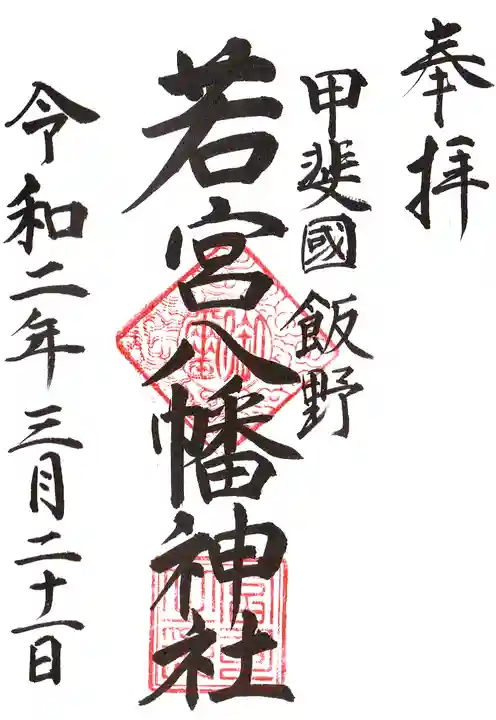 奉拝
甲斐國 飯野
若宮八幡神社
令和二年三月二十一日